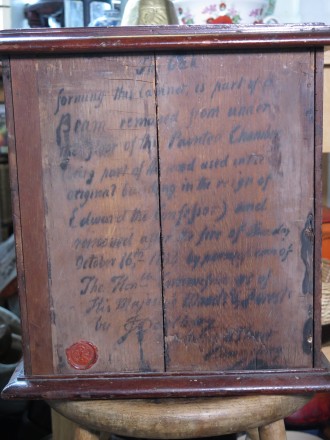 The Oak
forming this Cabinet, is part of a
Beam removed from under
the floor of the Painted Chamber
being part of the wood used in the
original building in the reign of
Edward the Confessor) and
removed after the fire of Thursday
October 16th by permission of
The Honble Commissioners of
His Majesty's Woods & Forests
by
Street